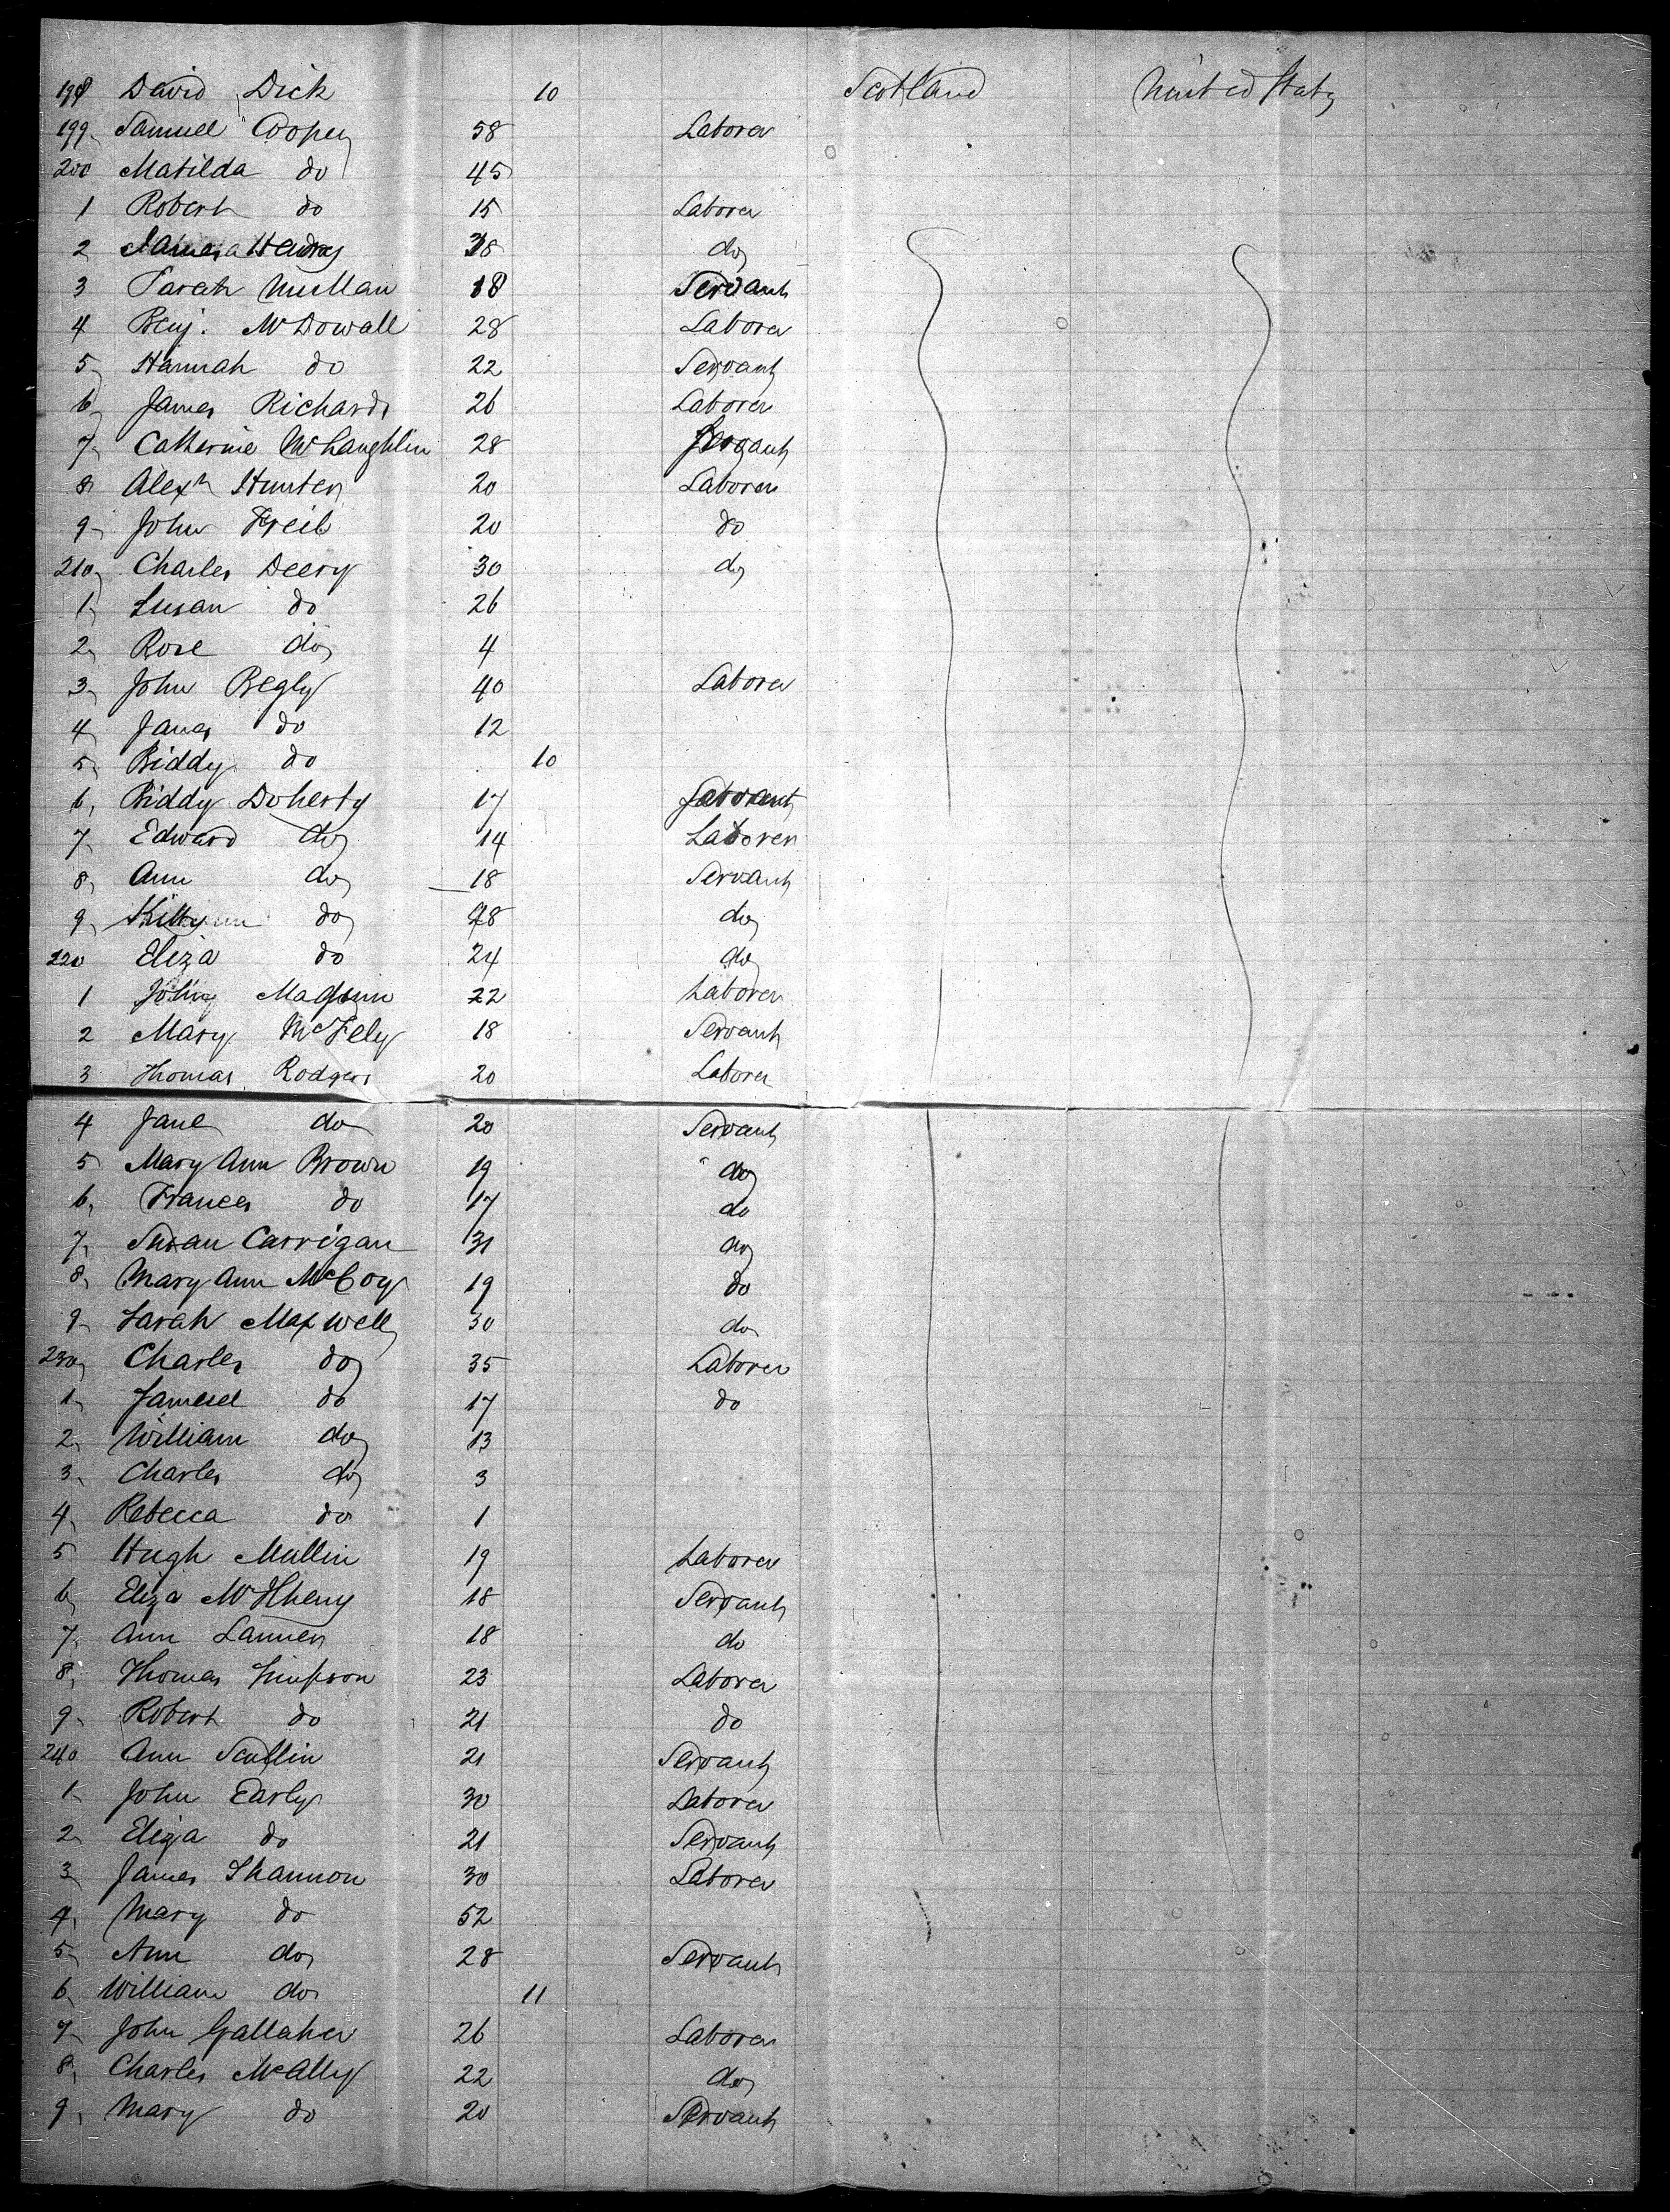 198 David Dick 10 Scotland United States
199 Samuel Cooper 58 Laborer
200 Matilda do 45
1 Robert do 15 Laborer
2 38 do
3 Sarah McMullan 18 Servant
4 Benj. McDowall 28 Laborer
5 Hannah do 22 Servant
6 James Richards 26 Laborer
7 Catherine McLaughlin 28 Servant
8 Alexr Hunter 20 Laborer
9 John Freil 20 do
210 Charles Deery 30 do
1 Susan do 26
2 Rose do 4
3 John Begly 40 Laborer
4 James do 12
5 Biddy do 10
6 Biddy Doherty 17 Servant
7 Edward do 14 Laborer
8 Ann do 18 Servant
9 Kitty do 28 do
220 Eliza do 24 do
1 John Maginn 22 Laborer
2 Mary McFely 18 Servant
3 Thomas Rodgers 20 Laborer
4 Jane do 20 Servant
5 Mary Ann Brown 19 do
6 Frances do 17 do
7 Susan Carrigan 31 do
8 Mary Ann McCoy 19 do
9 Sarah Maxwell 30 do
230 Charles do 35 Laborer
1 do 17 do
2 William do 13
3 Charles do 3
4 Rebecca do 1
5 Hugh Mullin 19 Laborer
6 Eliza 18 Servant
7 Ann 18 do
8 Thomas Simpson 23 Laborer
9 Robert do 21 do
240 Ann Scullin 21 Servant
1 John Early 30 Laborer
2 Eliza do 21 Servant
3 James Shannon 30 Laborer
4 Mary do 52
5 Ann do 28 Servant
6 William do 11
7 John Gallaher 26 Laborer
8 Charles McAlly 22 do
9 Mary do 20 Servant